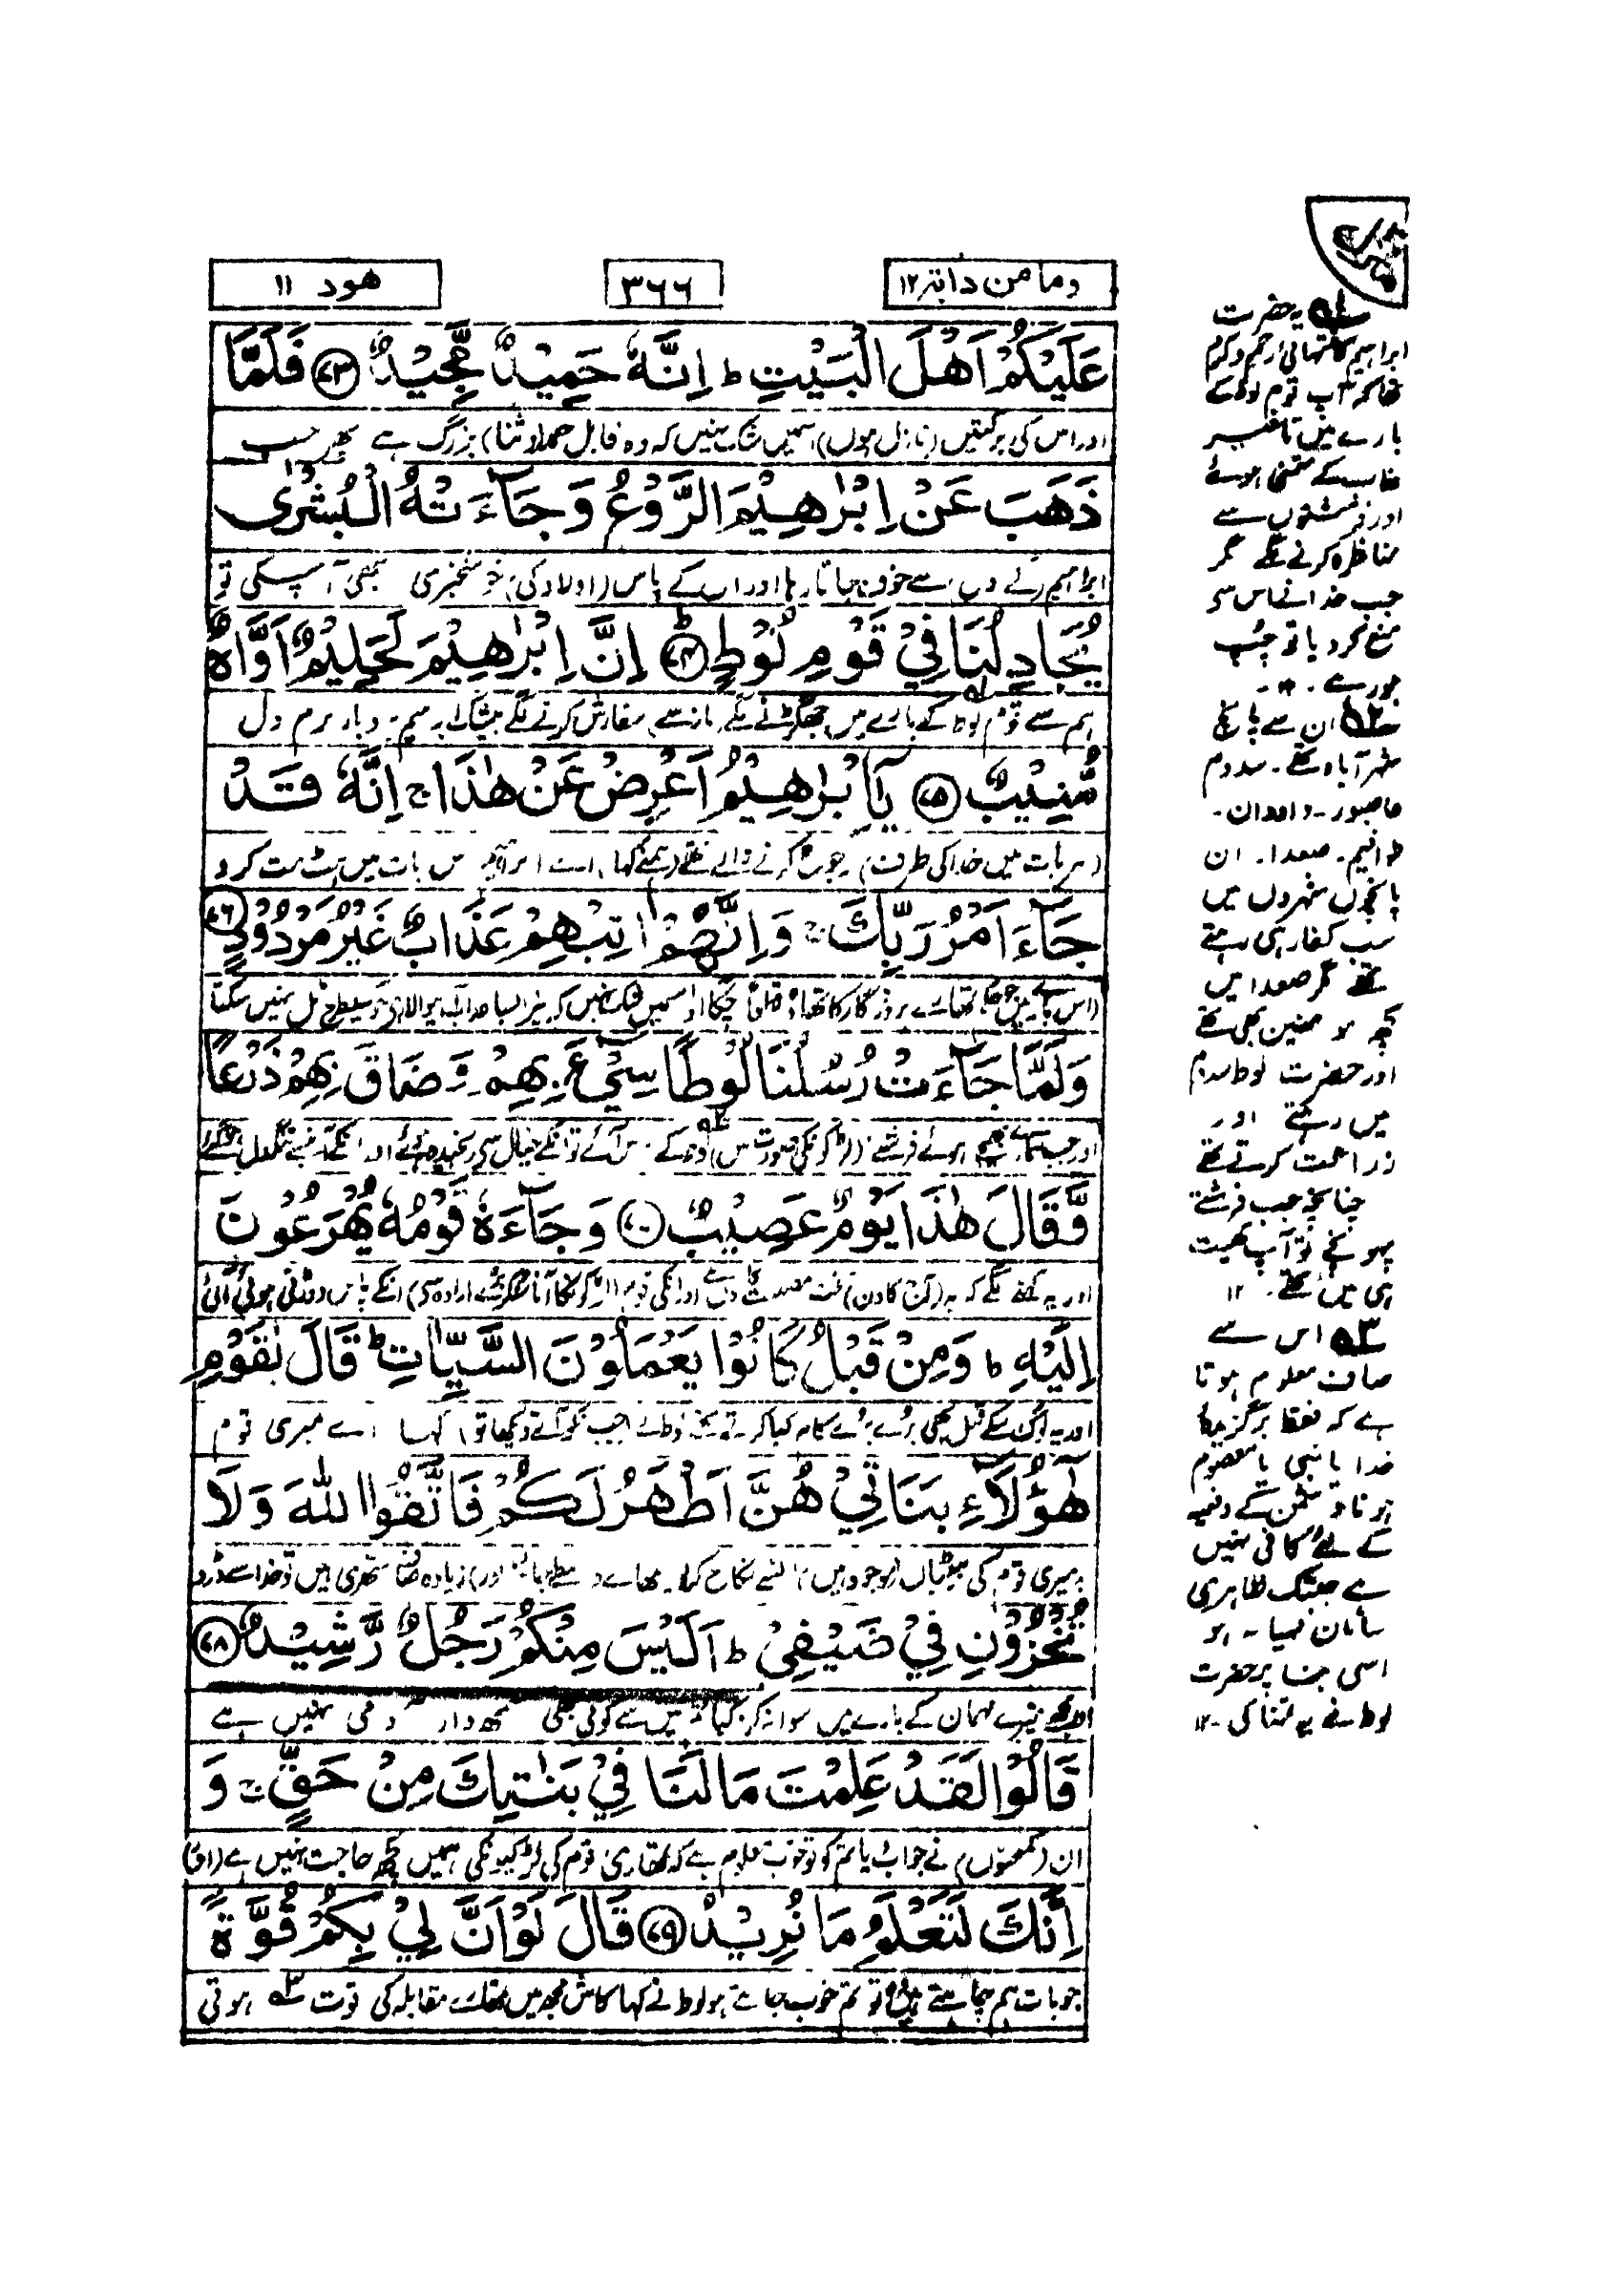 ومامن دابۃ ۱۲
۳۶۶
ھود ۱۱
عَلَيْكُمْ اَهْلَ الْبَيْتِ ؕ اِنَّهٗ حَمِيْدٌ مَّجِيْدٌ ﴿۷۳﴾ فَلَمَّا
اور اس کی برکتیں (نازل ہوں) اسمیں شک نہیں کہ وہ قابل حمد (و ثنا) بزرگ ہے پھر جب
ذَهَبَ عَنْ اِبْرٰهِيْمَ الرَّوْعُ وَ جَآءَتْهُ الْبُشْرٰى
ابراہیم کے دل سے خوف جاتا رہا اور ان کے پاس (اولاد کی) خوشخبری بھی آ چکی تو
يُجَادِلُنَا فِيْ قَوْمِ لُوْطٍ ؕ ﴿۷۴﴾ اِنَّ اِبْرٰهِيْمَ لَحَلِيْمٌ اَوَّاهٌ
ہم سے قوم لوط کے بارے میں جھگڑنے لگے سفارش کرنے لگے بیشک ابراہیم بردبار نرم دل
مُّنِيْبٌ ﴿۷۵﴾ يٰۤاِبْرٰهِيْمُ اَعْرِضْ عَنْ هٰذَا ۚ اِنَّهٗ قَدْ
(ہر بات میں خدا کی طرف) رجوع کرنے والے تھے (ہمنے کہا) اے ابراہیم اس بات میں ہٹ مت کرو
جَآءَ اَمْرُ رَبِّكَ ۚ وَ اِنَّهُمْ اٰتِيْهِمْ عَذَابٌ غَيْرُ مَرْدُوْدٍ ﴿۷۶﴾
(اس بارے میں) جو حکم تمھارے پروردگار کا تھا وہ قطعاً آ چکا اور اسمیں شک نہیں کہ نہیں سکتا
وَ لَمَّا جَآءَتْ رُسُلُنَا لُوْطًا سِيْٓءَ بِهِمْ وَ ضَاقَ بِهِمْ ذَرْعًا
اور جب ہمارے بھیجے ہوئے فرشتے (لڑکوں کی صورت میں) لوط کے پاس آئے تو انکے خیال سے رنجیدہ ہوئے اور انکے
وَّ قَالَ هٰذَا يَوْمٌ عَصِيْبٌ ﴿۷۷﴾ وَ جَآءَهٗ قَوْمُهٗ يُهْرَعُوْنَ
اور یہ کہنے لگے کہ یہ (آج کا دن) سخت مصیبت کا دن ہے اور انکی قوم انکے پاس دوڑتی ہوئی آئی
اِلَيْهِ ؕ وَ مِنْ قَبْلُ كَانُوْا يَعْمَلُوْنَ السَّيِّاٰتِ ؕ قَالَ يٰقَوْمِ
اور یہ لوگ اسکے قبل بھی بُرے بُرے کام کیا کرتے تھے لوط نے (جب انکو آتے دیکھا تو) کہا اے میری قوم
هٰۤؤُلَآءِ بَنَاتِيْ هُنَّ اَطْهَرُ لَكُمْ فَاتَّقُوا اللّٰهَ وَ لَا
یہ میری قوم کی بیٹیاں (موجود ہیں ان سے نکاح کرلو) یہ تمھارے واسطے زیادہ صاف ستھری ہیں تو خدا سے ڈرو
تُخْزُوْنِ فِيْ ضَيْفِيْ ؕ اَلَيْسَ مِنْكُمْ رَجُلٌ رَّشِيْدٌ ﴿۷۸﴾
اور مجھے میرے مہمان کے بارے میں رسوا نہ کرو کیا تم میں سے کوئی بھی سمجھدار آدمی نہیں ہے
قَالُوْا لَقَدْ عَلِمْتَ مَا لَنَا فِيْ بَنٰتِكَ مِنْ حَقٍّ ۚ وَ
ان (کمبختوں) نے جواب دیا تم کو تو خوب معلوم ہے کہ تمھاری قوم کی لڑکیوں کی ہمیں کچھ حاجت نہیں ہے (اور)
اِنَّكَ لَتَعْلَمُ مَا نُرِيْدُ ﴿۷۹﴾ قَالَ لَوْ اَنَّ لِيْ بِكُمْ قُوَّةً
جو بات ہم چاہتے ہیں وہ تو تم خوب جانتے ہو لوط نے کہا کاش مجھ میں تمھارے مقابلہ کی قوت ۳ ہوتی
۱ یہ حضرت
ابراہیم کا انتہائی رحم و کرم
تھا کہ آپ قوم لوط کے
بارے میں تاخیر
عذاب کے متمنی ہوئے
اور فرشتوں سے
مناظرہ کرنے لگے مگر
جب خدا نے اس سے
منع کردیا تو چپ
ہورہے ۔ ۱۲ ۔
۲ ان سے پانچ
شہر آباد تھے ۔ سدوم
عاصبور ۔ دادوان ۔
صعدا ۔ ان
پانچوں شہروں میں
سب کفار ہی رہتے
تھے مگر صعدا میں
کچھ مومنین بھی تھے
اور حضرت لوط سدوم
میں رہتے اور
زراعت کرتے تھے
چنانچہ جب فرشتے
پہونچے تو آپ کھیت
ہی میں تھے ۔ ۱۲
۳ اس سے
صاف معلوم ہوتا
ہے کہ فقط برگزیدۂ
خدا یا نبی یا معصوم
ہونا دشمن کے دفعیہ
کے لئے کافی نہیں
ہے جبتک ظاہری
سامان مہیا نہ ہو
اسی بنا پر حضرت
لوط نے یہ تمنا کی ۔ ۱۲